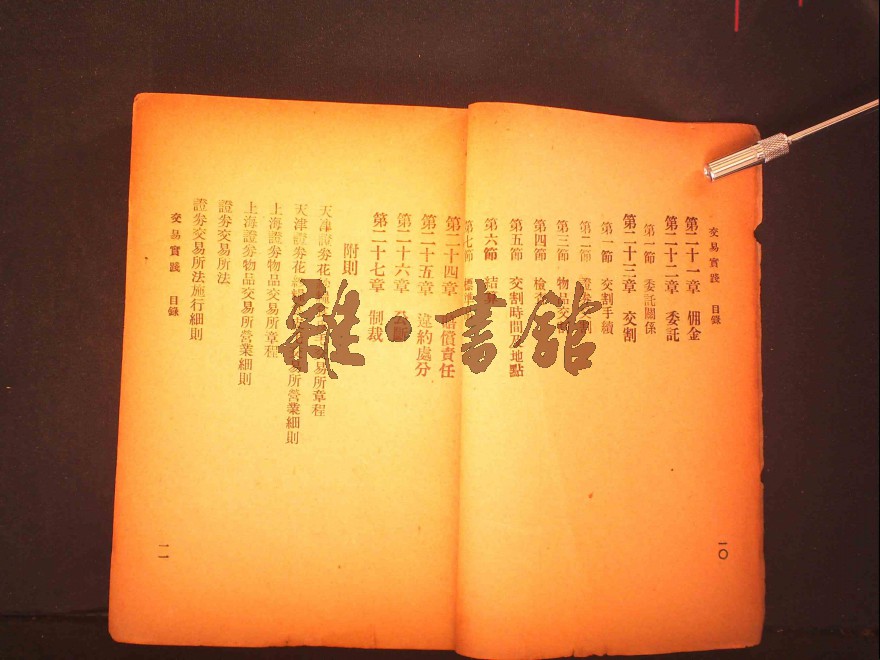 交易實踐 目錄
第二十一章 佣金
第二十二章 委託
第一節 委託關係
第二十三章 交割
第一節 交割手續
第二節 割
第三節 物品交割
第四節 檢
第五節 交割時間及地點
第六節 結
第七節 標準
一〇
第二十四章 賠償責任
第二十五章 違約處分
第二十六章
第二十七章 制裁
附則
天津證券花易所章程
天津證券花易所營業細則
上海證券物品交易所章程
上海證券物品交易所營業細則
證券交易所法
證券交易所法施行細則
交易實踐 目錄
一一
雜·書館